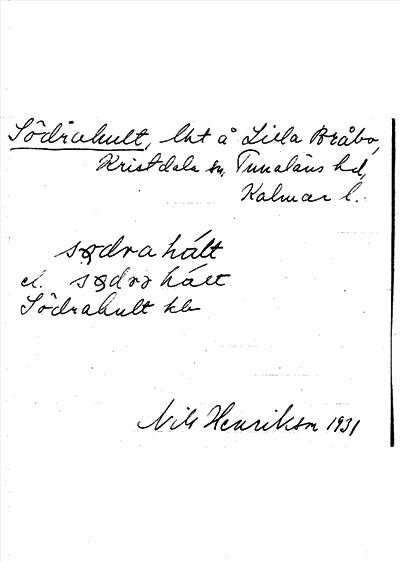 Södrahult, lht å Lilla Bråbo,
Kristdala sn, Tunaläns hd,
Kalmar l.
sødra hált
el. sødrə hált
Södrahult kb
Nils Henrikson 1931